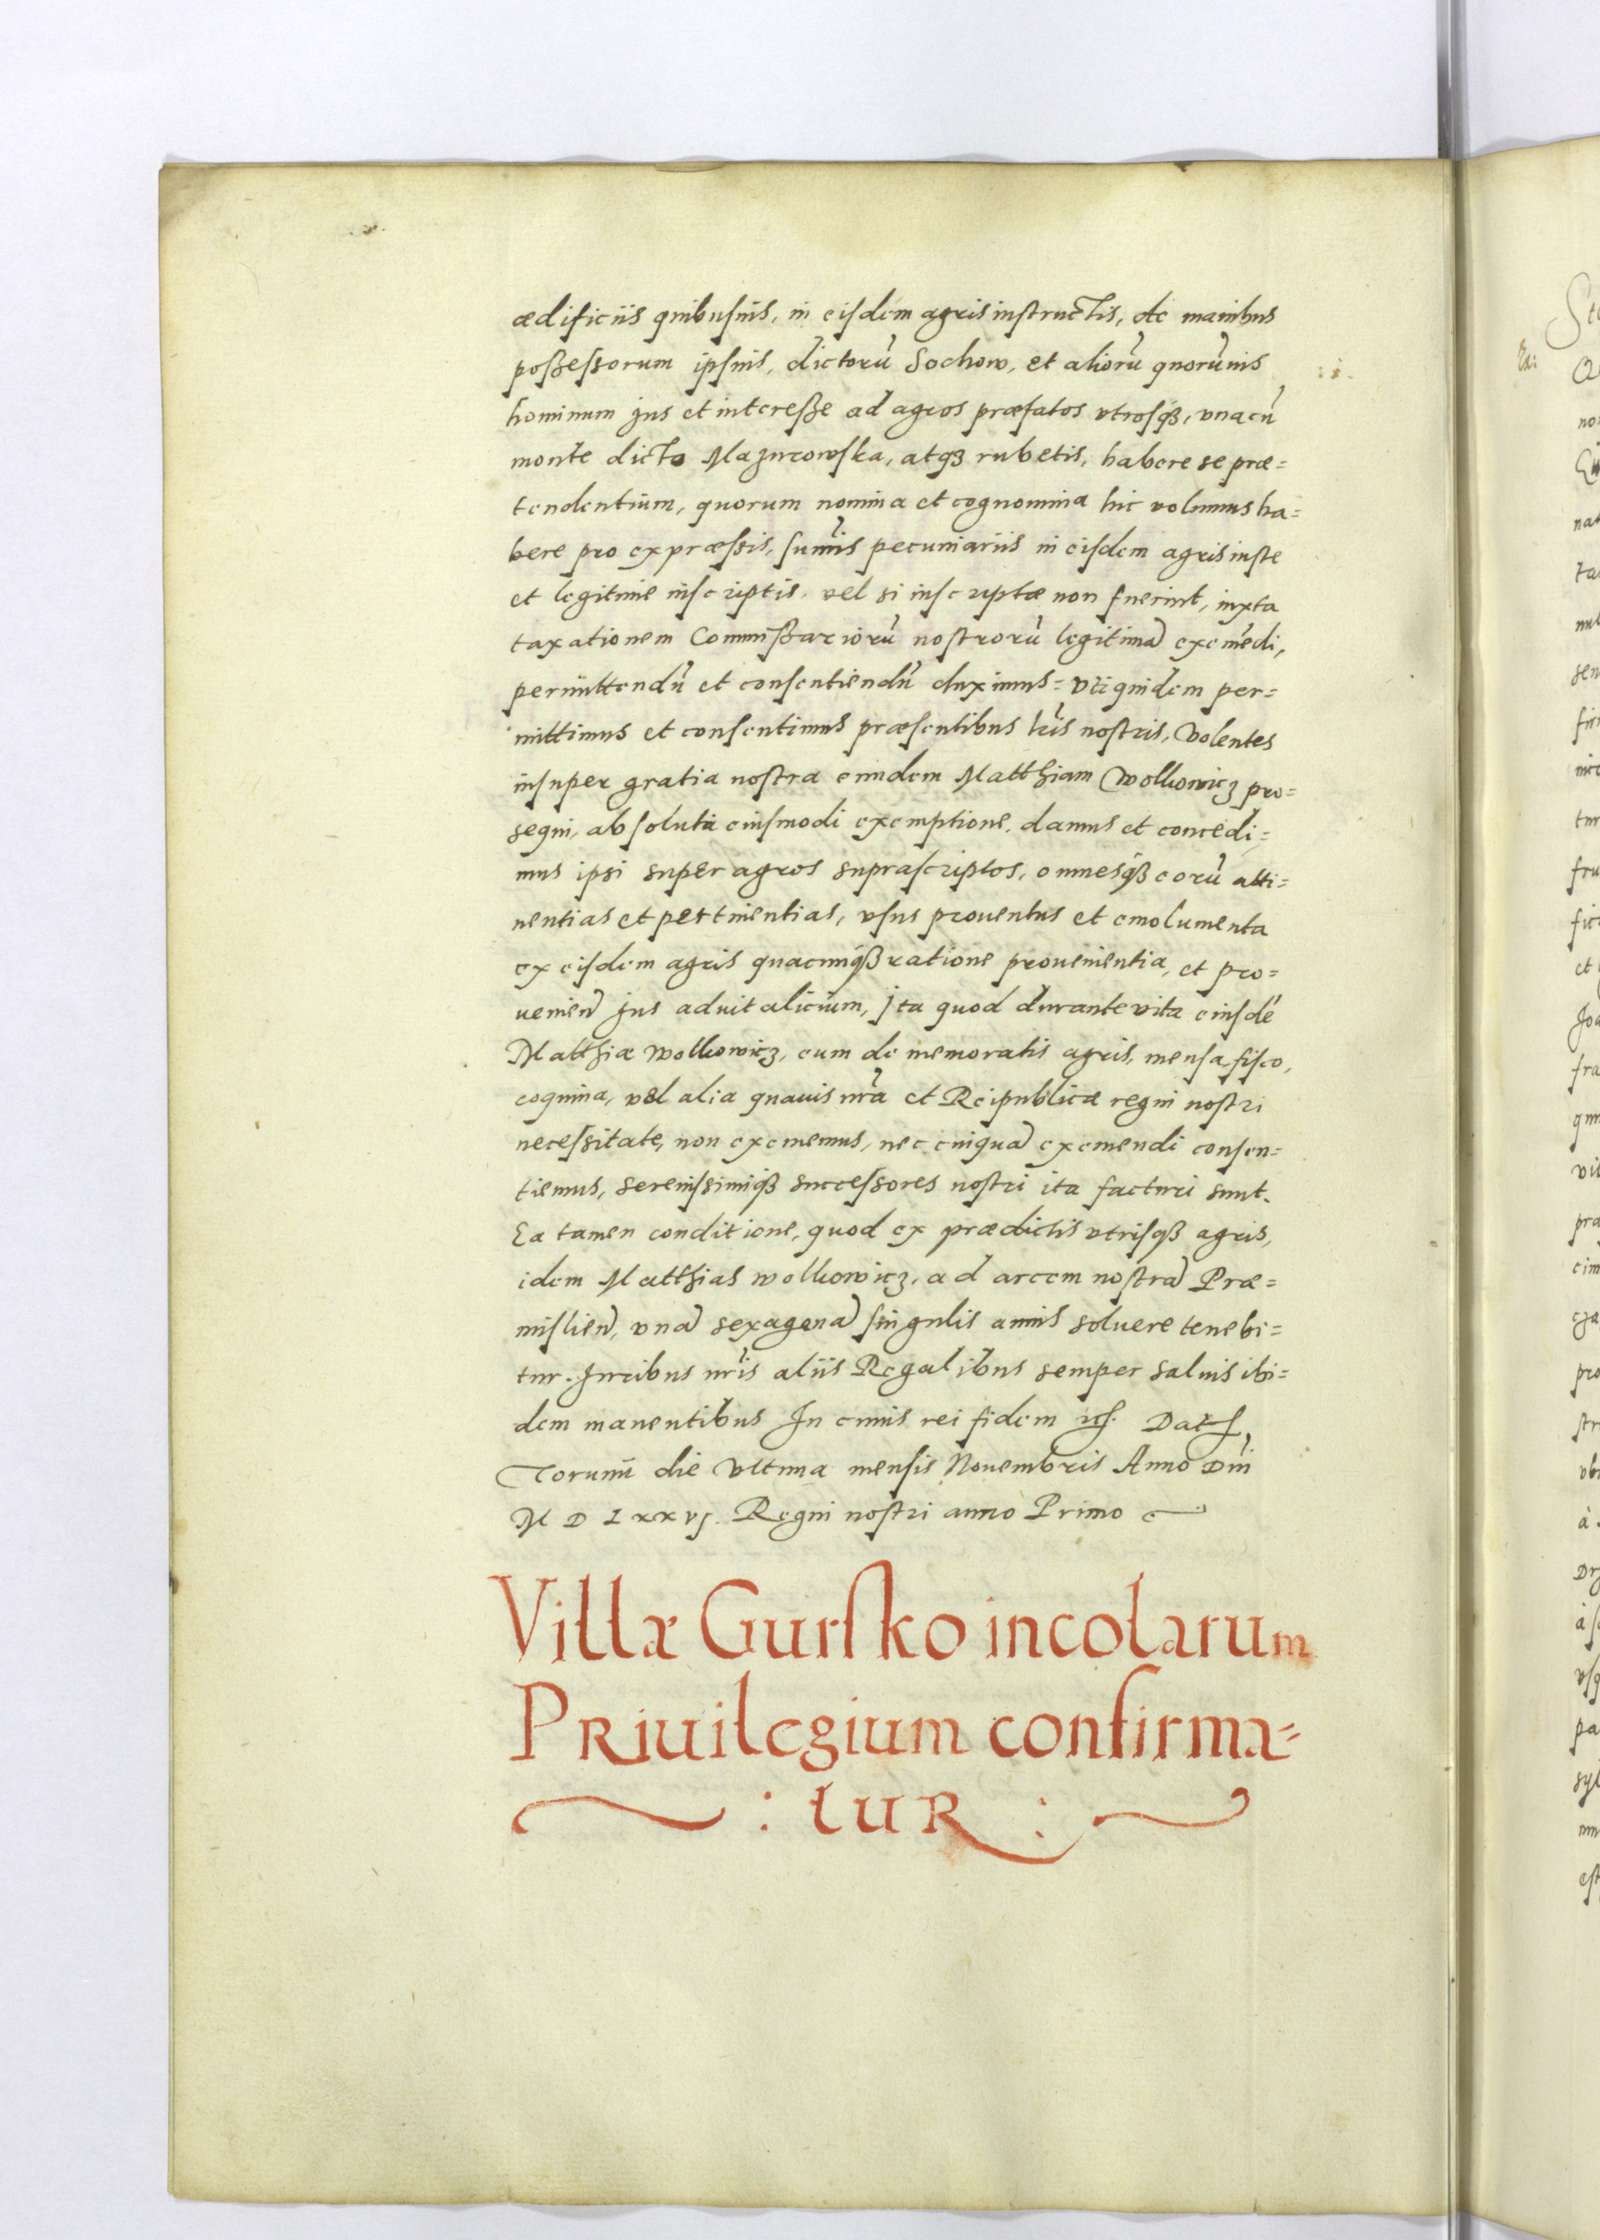 ædificiis quibusuis, in eisdem agris instructis, de manibus
possessorum ipsius, dictorũ Sochow, et aliorũ quorũuis
hominum jus et interesse ad agros præfatos vtrosq3, vnacũ
monte dicto Mazurowska, atq3 rubetis, habere se præ=
tendentium, quorum nomina et cognomina hic volumus ha=
bere pro expræssis, sum̃is pecuniariis in eisdem agris iuste
et legitime inscriptis, vel si inscriptæ non fuerint, iuxta
taxationem Commissariorũ nostrorũ legitimã eximẽdi,
permittendũ et consentiendũ duximus= vti quidem per=
mittimus et consentimus præsentibus lr̃is nostris, Volentes
insuper gratia nostra eundem Matthiam Wolkowicz pro=
sequi, absoluta eiusmodi exemptione, damus et concedi=
mus ipsi super agros suprascriptos, omnesq3 eorũ atti=
nentias et pertinentias, vsus prouentus et emolumenta
ex eisdem agris quacunq3 ratione prouenientia, et pro=
uenien̄ jus aduitalicium, Ita quod durante vita eiusdẽ
Matthiæ Wolkowicz, eum de memoratis agris, mensa, fisco,
coquina, vel alia quauis nr̃a et Reipublicæ regni nostri
necessitate, non exememus, nec cuiquã exemendi consen=
tiemus, serenissimiq3 successores nostri ita facturi sunt.
Ea tamen conditione, quod ex prædictis vtrisq3 agris,
idem Matthias Wolkowicz, ad arcem nostrã Præ=
mislien̄, vnã sexagenã singulis annis soluere tenebi=
tur. Juribus nr̃is aliis Regalibus semper saluis ibi=
dem manentibus In cuius rei fidem Dat
Torunii die Vltima mensis Nouembris Anno Dn̄i
M D Lxxvj. Regni nostri anno Primo
Villæ Gursko incolarum
PRiuilegium confirma=
: tuR :